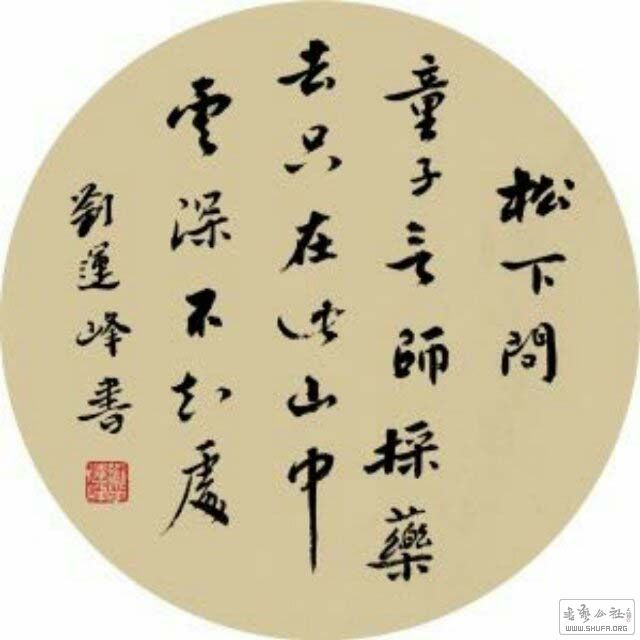 松下問
童子言師採藥
去只在此山中
雲深不知處
劉運峰書
書藝公社
WWW.SHUFA.ORG